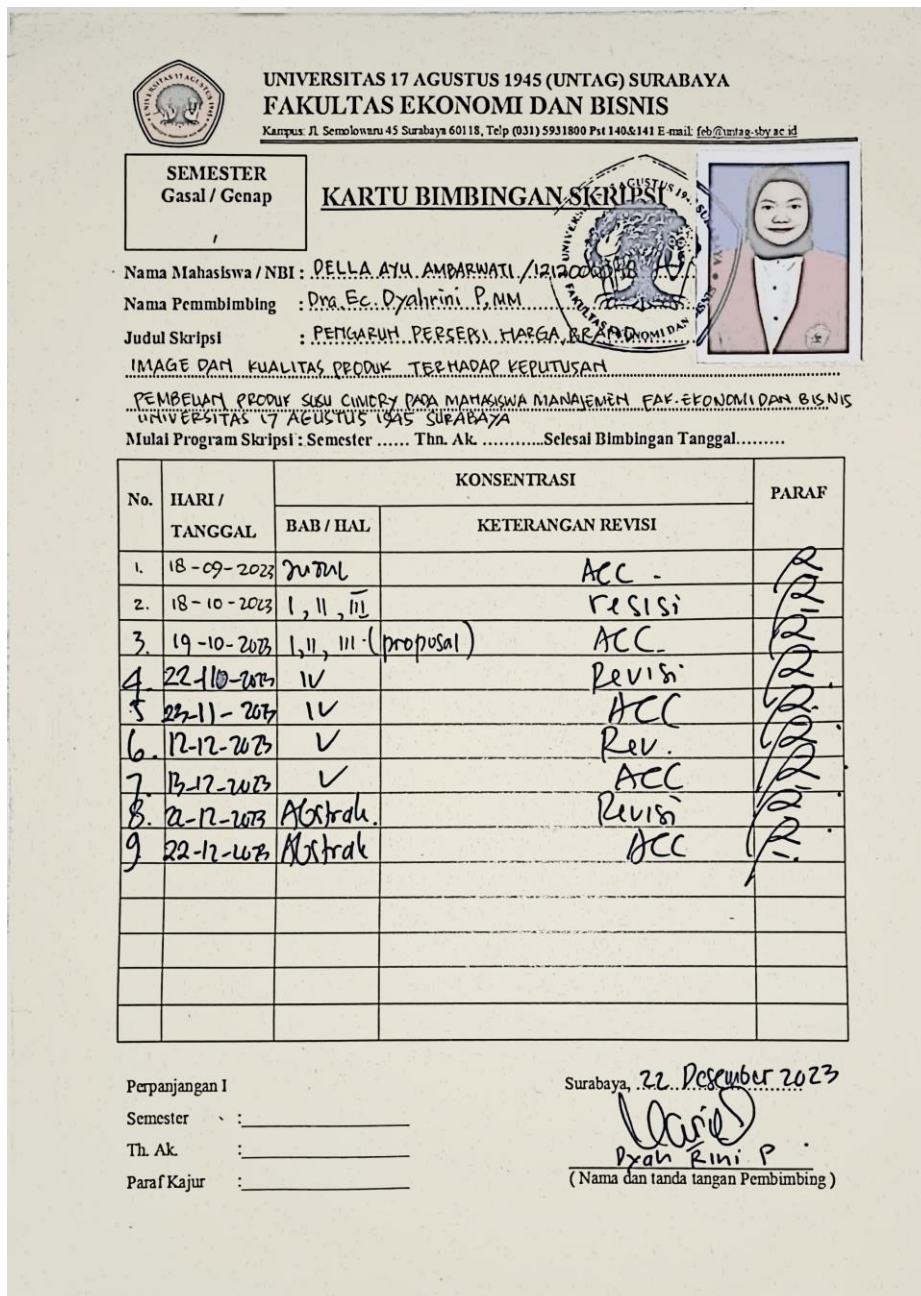 UNIVERSITAS 17 AGUSTUS 1945 (UNTAG) SURABAYA
FAKULTAS EKONOMI DAN BISNIS
Kampus: Jl. Semolowaru 45 Surabaya 60118, Telp (031) 5931800 Pst 140&141 E-mail: feb@untag-sby.ac.id
SEMESTER
Gasal / Genap
/
KARTU BIMBINGAN SKRIPSI
Nama Mahasiswa / NBI : DELLA AYU AMBARWATI /
Nama Pemmbimbing : Dra. Ec. Dyahrini P, MM
Judul Skripsi : PENGARUH PERSEPSI HARGA, BRAND
IMAGE DAN KUALITAS PRODUK TERHADAP KEPUTUSAN
PEMBELIAN PRODUK SUSU CIMORY PADA MAHASISWA MANAJEMEN FAK. EKONOMI DAN BISNIS
UNIVERSITAS 17 AGUSTUS 1945 SURABAYA
Mulai Program Skripsi : Semester ...... Thn. Ak. ...........Selesai Bimbingan Tanggal.........
No. HARI / TANGGAL KONSENTRASI PARAF
BAB / HAL KETERANGAN REVISI
1. 18-09-2023 Judul ACC -
2. 18-10-2023 I, II, III resisi
3. 19-10-2023 I, II, III (proposal) ACC
4. 22-10-2023 IV Revisi
5 23-11-2023 IV ACC
6. 12-12-2023 V Rev.
7. 13-12-2023 V ACC
8. 21-12-2023 Abstrak. Revisi
9 22-12-2023 Abstrak ACC
Perpanjangan I
Semester :
Th. Ak. :
Paraf Kajur :
Surabaya, 22 Desember 2023
Dyah Rini P
( Nama dan tanda tangan Pembimbing )